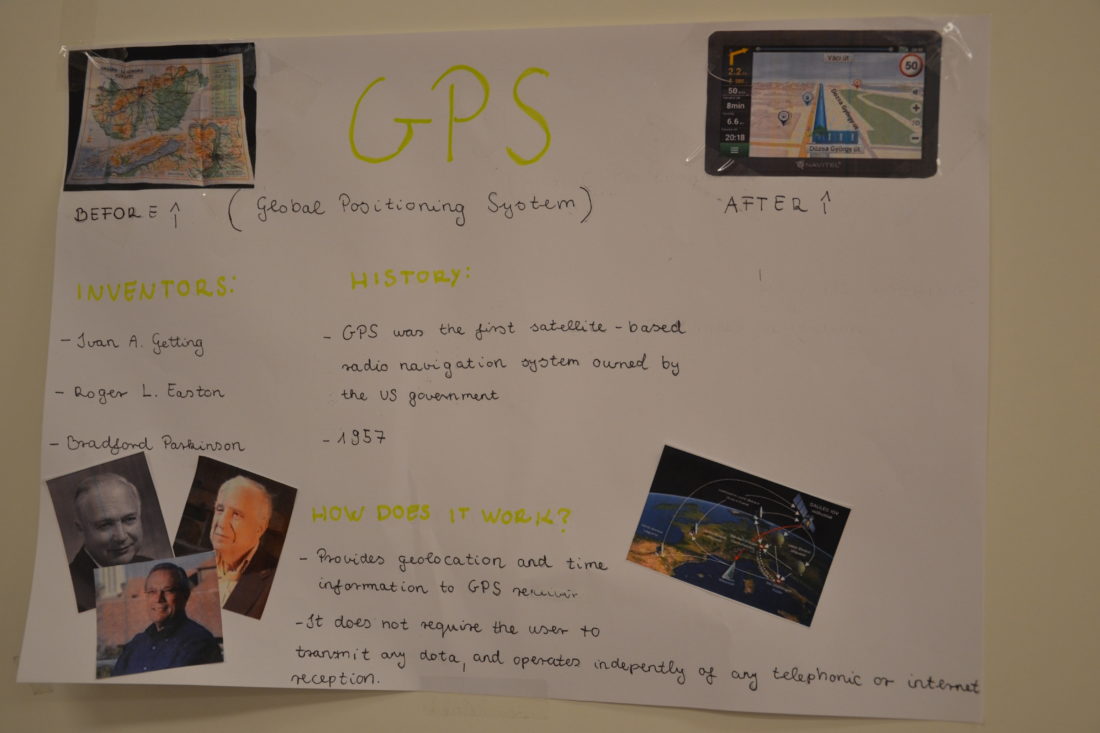 GPS
(Global Positioning System)
BEFORE ↑
AFTER ↑
Váci út
50
2.2
50
8min
6.6
20:18
Dózsa György út
Dózsa György út
NAVITEL
INVENTORS:
- Ivan A. Getting
- Roger L. Easton
- Bradford Parkinson
HISTORY:
- GPS was the first satellite - based
radio navigation system owned by
the US government
- 1957
HOW DOES IT WORK?
- Provides geolocation and time
information to GPS
- It does not require the user to
transmit any data, and operates indepently of any telephonic or internet
reception.
GALILEO IOV